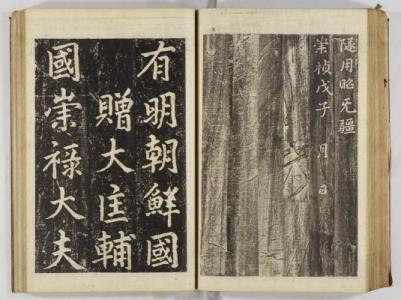 隧用昭无疆
崇禎戊子 月 日
有明朝鮮國
贈大匡輔
國崇祿大夫